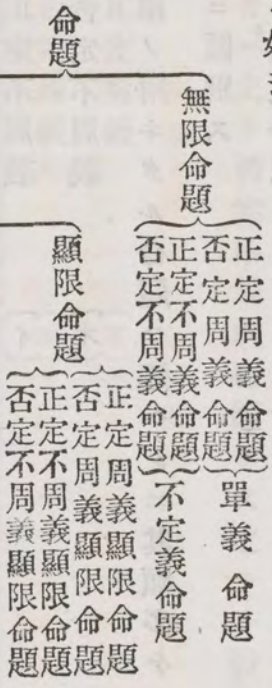 命題
無限命題
正定周義命題
否定周義命題
正定不周義命題
否定不周義命題
單義命題
不定義命題
顯限命題
正定周義顯限命題
否定周義顯限命題
正定不周義顯限命題
否定不周義顯限命題